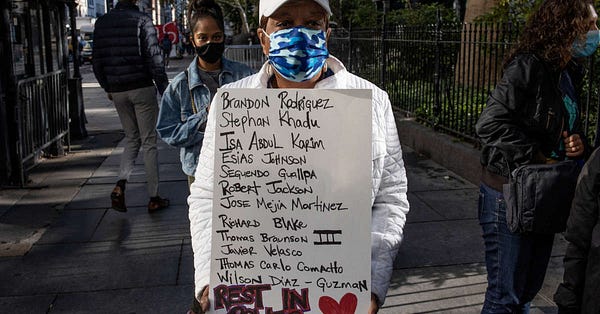 BRANDON RODRIGUEZ
STEPHAN KHADU
ISA ABDUL KARIM
ESIAS JOHNSON
SEGUNDO GUALLPA
ROBERT JACKSON
JOSE MEJÍA MARTINEZ
RICHARD BLAKE
THOMAS BRAUNSON III
JAVIER VELASCO
THOMAS CARLO CAMACTTO
WILSON DIAZ-GUZMAN
REST IN